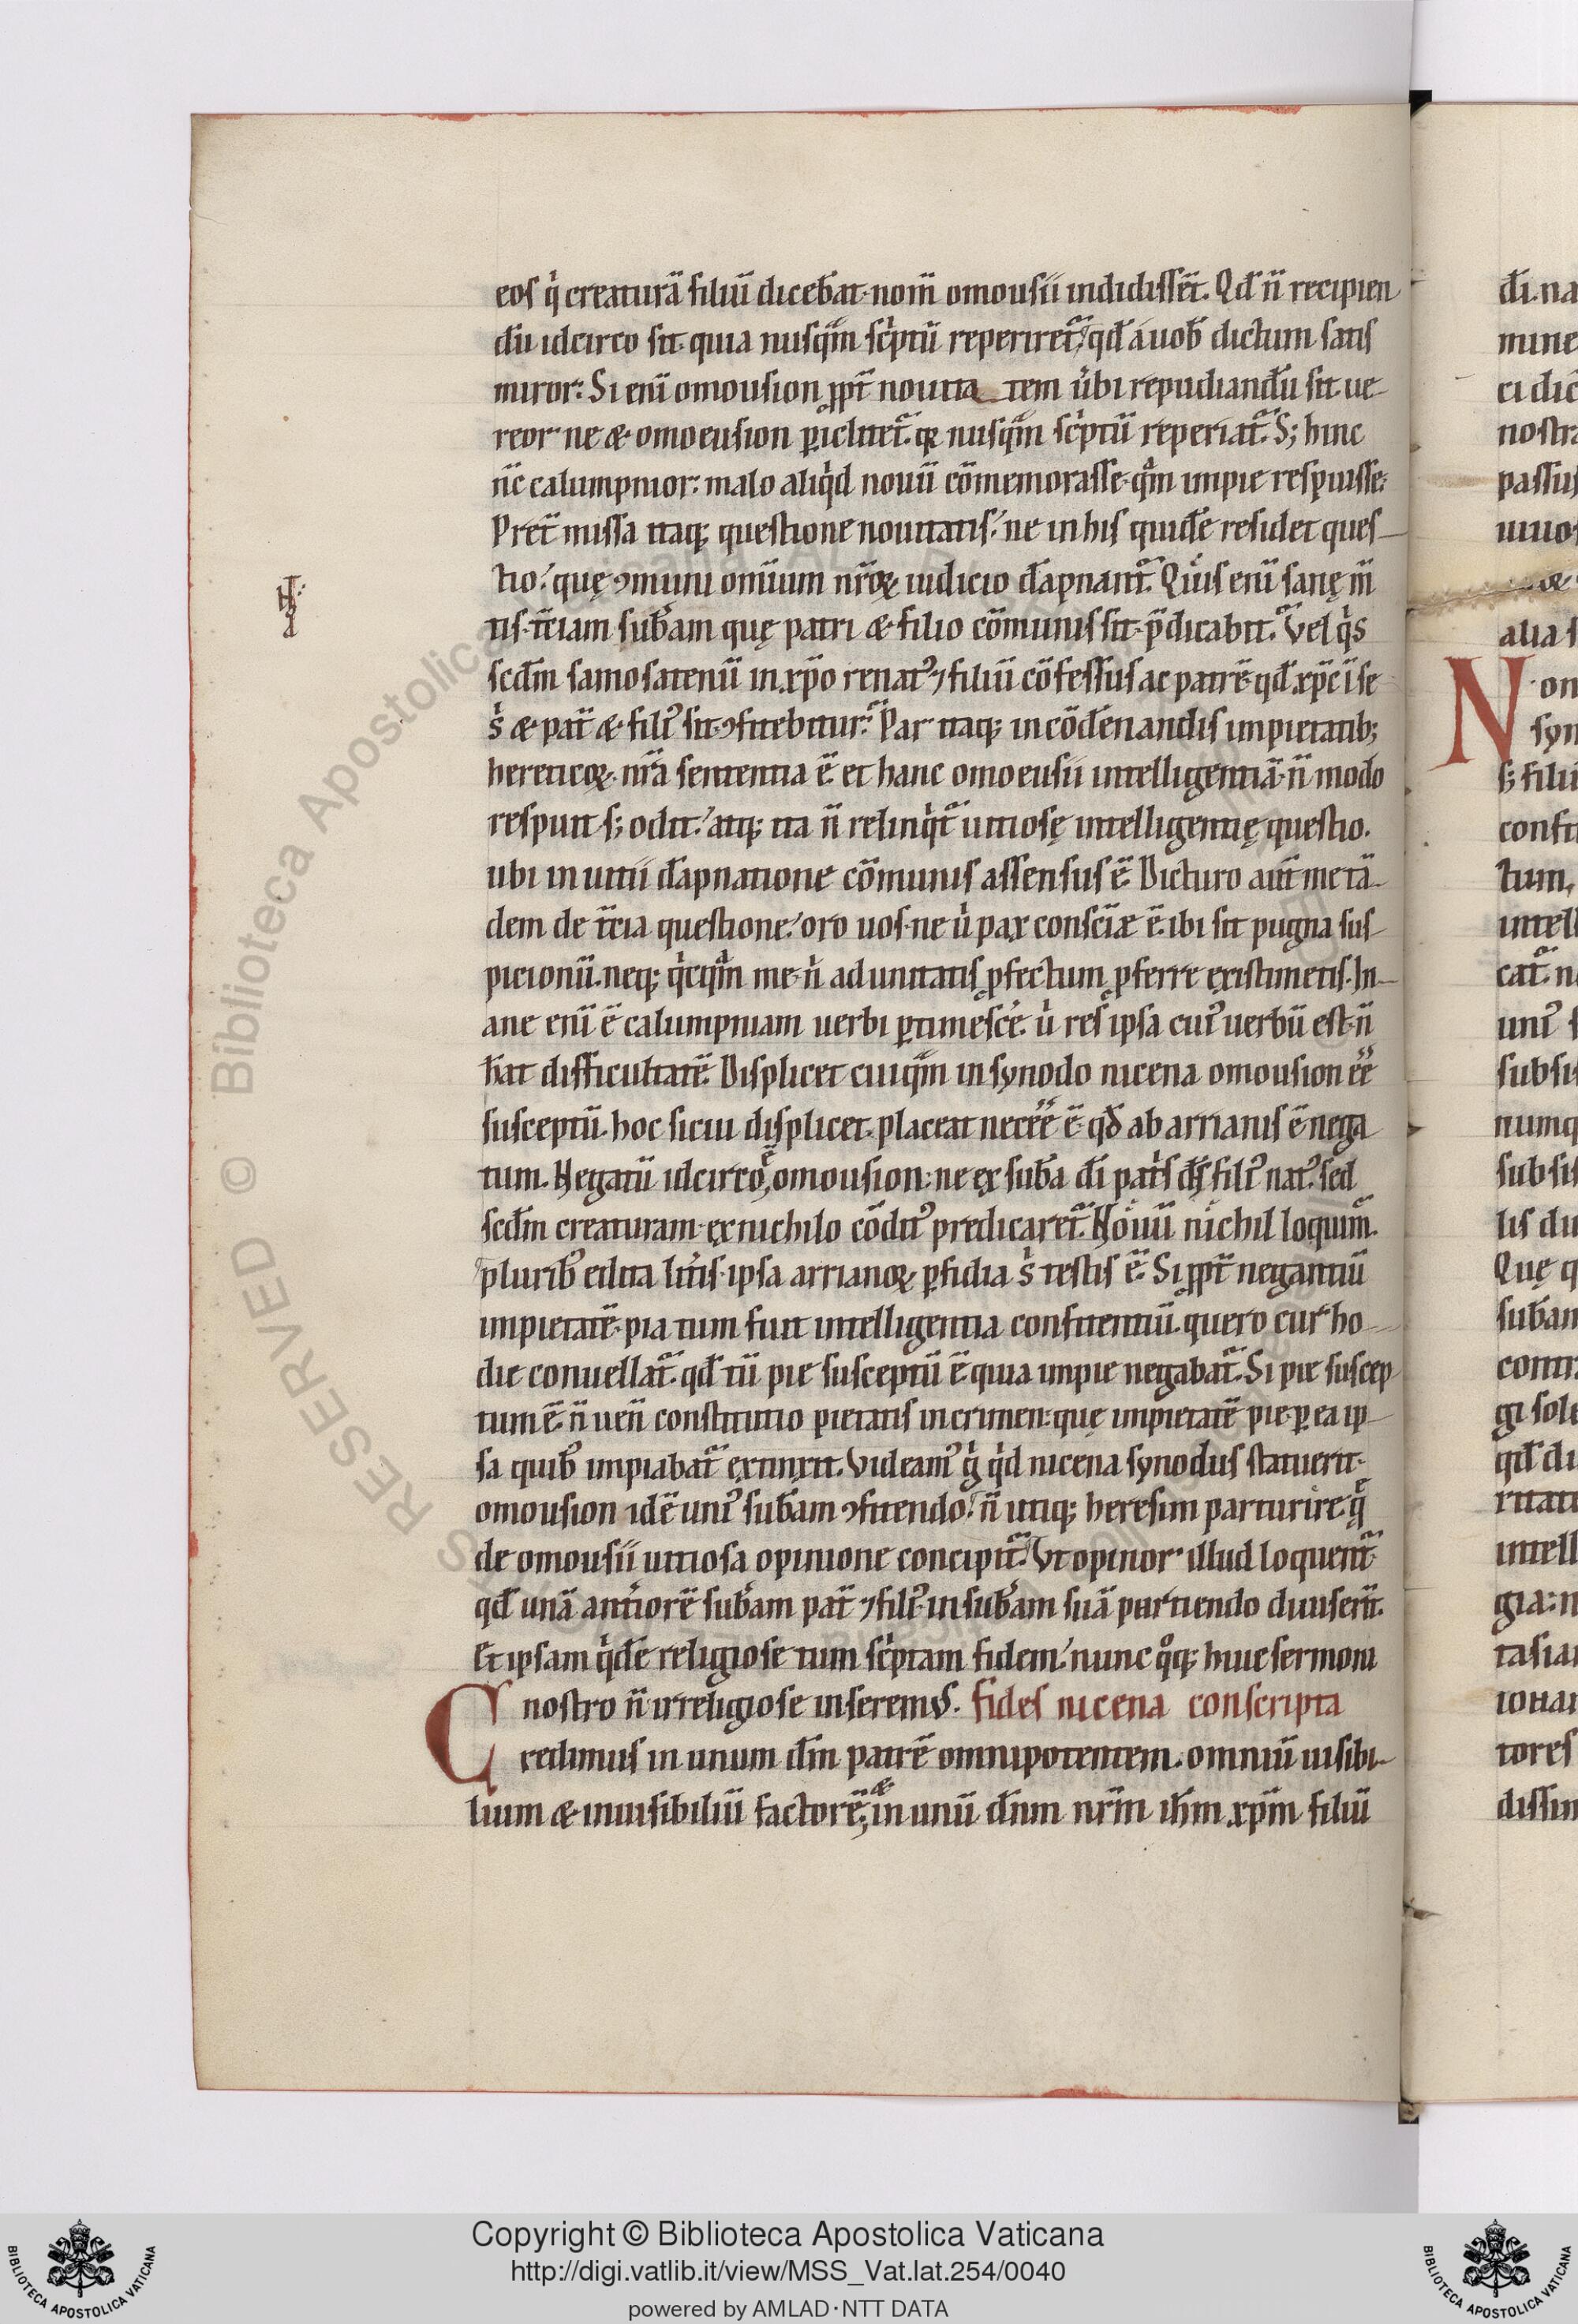 eos q̍ creaturā filiū dicebāt· nom̄ omousii indidissēt. Qd̄ n̄ recipien
dū idcirco sit· quia nusqͣm sc̍ptū reperiret᷑· qd̄ a uob̄ dictum satis
miror: Si enī omousion ꝓpt̄ nouita tem u̍bi repudiandū sit· ue
reor ne & omoeusion ꝑiclitet᷑· qꝛ nusqͣm sc̍ptū reperiat᷑. S; hinc
n̄c calumpnior: malo aliq̍d nouū cōmemorasse· qͣm impie respuisse.
Pret̄missa itaq; questione nouitatis· ne in his quidē residet ques
tio· quę ꝯmuni omīum nr̄oꝝ iudicio dāpnant᷑. Quis enī sanę m̄
tis· t̄ciam sub̄am quę patri & filio cōmunis sit· p̄dicabit. Vel q̍s
scd̄m samosatenū in xp̄o renatꝰ ⁊ filiū cōfessus ac patrē· qd̄ xp̄c ī se
s̍ & pat̄ & filiꝰ sit· ꝯfitebitur. Par itaq; in cōdēnandis impietatib;
hereticoꝝ· nr̄a sententia ē· et hanc omoeusii intelligentiā· n̄ modo
respuit s; odit· atq; ita n̄ relinq̍t᷑ uitiosę intelligentię questio.
ubi in uitii dāpnatione cōmunis assensus ē. Dicturo aūt me tā
dem de t̄cia questione· oro uos· ne u̍ pax consciæ ē· ibi sit pugna sus
picionū. neq; q̍cqͣm me· n̍ ad unitatis ꝓfectum ꝓferre existimetis. In
ane enī ē calumpniam uerbi ꝑtimesce̍· u̍ res ipsa cuiꝰ uerbū est· n̄
h̄at difficultatē. Displicet cuiqͣm in synodo nicena omousion ēē
susceptū· hoc sicui displicet· placeat necēē ē· qd̄ ab arrianis ē nega
tum. Negatū idcirco ē omousion: ne ex sub̄a dī pat̍s ds̄ filiꝰ natꝰ· sed
scd̄m creaturam· ex nichilo cōditꝰ predicaret᷑. Nouū nichil loquim᷑.
plurib̄ edita lit̍is· ipsa arrianoꝝ ꝑfidia s̍ testis ē. Si ꝓpt̄ negantiū
impietatē· pia tum fuit intelligentia confitentiū· quero cur ho
die conuellat᷑· qd̄ tū pie susceptū ē quia impie negabat᷑. Si pie suscep
tum ē· n̄ uen̄ constitutio pietatis in crimen: quę impietatē pie· ꝑ ea ip
sa quib̄ impiabat᷑ extinxit. Videamꝰ g̍ q̍d nicena synodus statuerit·
omousion idē uniꝰ sub̄am ꝯfitendo· n̄ utiq; heresim parturire· q̄
de omousii uitiosa opinione concipit᷑. Vt opinor illud loquent᷑
qd̄ unā ant̍iorē sub̄am pat̄ ⁊ filiꝰ· in sub̄am suā partiendo diuiserīt.
Et ipsam q̍dē religiose tum sc̍ptam fidem· nunc qͦq; huic sermoni
nostro n̄ irreligiose inseremꝰ. fides nicena conscripta
Credimus in unum dm̄ patrē omnipotentem· omniū uisibi
lium & inuisibiliū factorē; & in unū dn̄m nr̄m ihm̄ xp̄m filiū
dī· na
mine
ci dic
nostra
passus
uiuos
alia s
Non
syn
s; filiū
confit
tum,
intell
cat᷑. n
uniꝰ s
subsis
numq
subsis
lis du
Quę q
sub̄am
contra
gi sole
qd̄ du
ritati
intell
gia: n
tasiam
tores
dissim
RESERVED © Biblioteca Apostolica
Copyright © Biblioteca Apostolica Vaticana
http://digi.vatlib.it/view/MSS_Vat.lat.254/0040
powered by AMLAD·NTT DATA
BIBLIOTECA APOSTOLICA VATICANA
BIBLIOTECA APOSTOLICA VATICANA